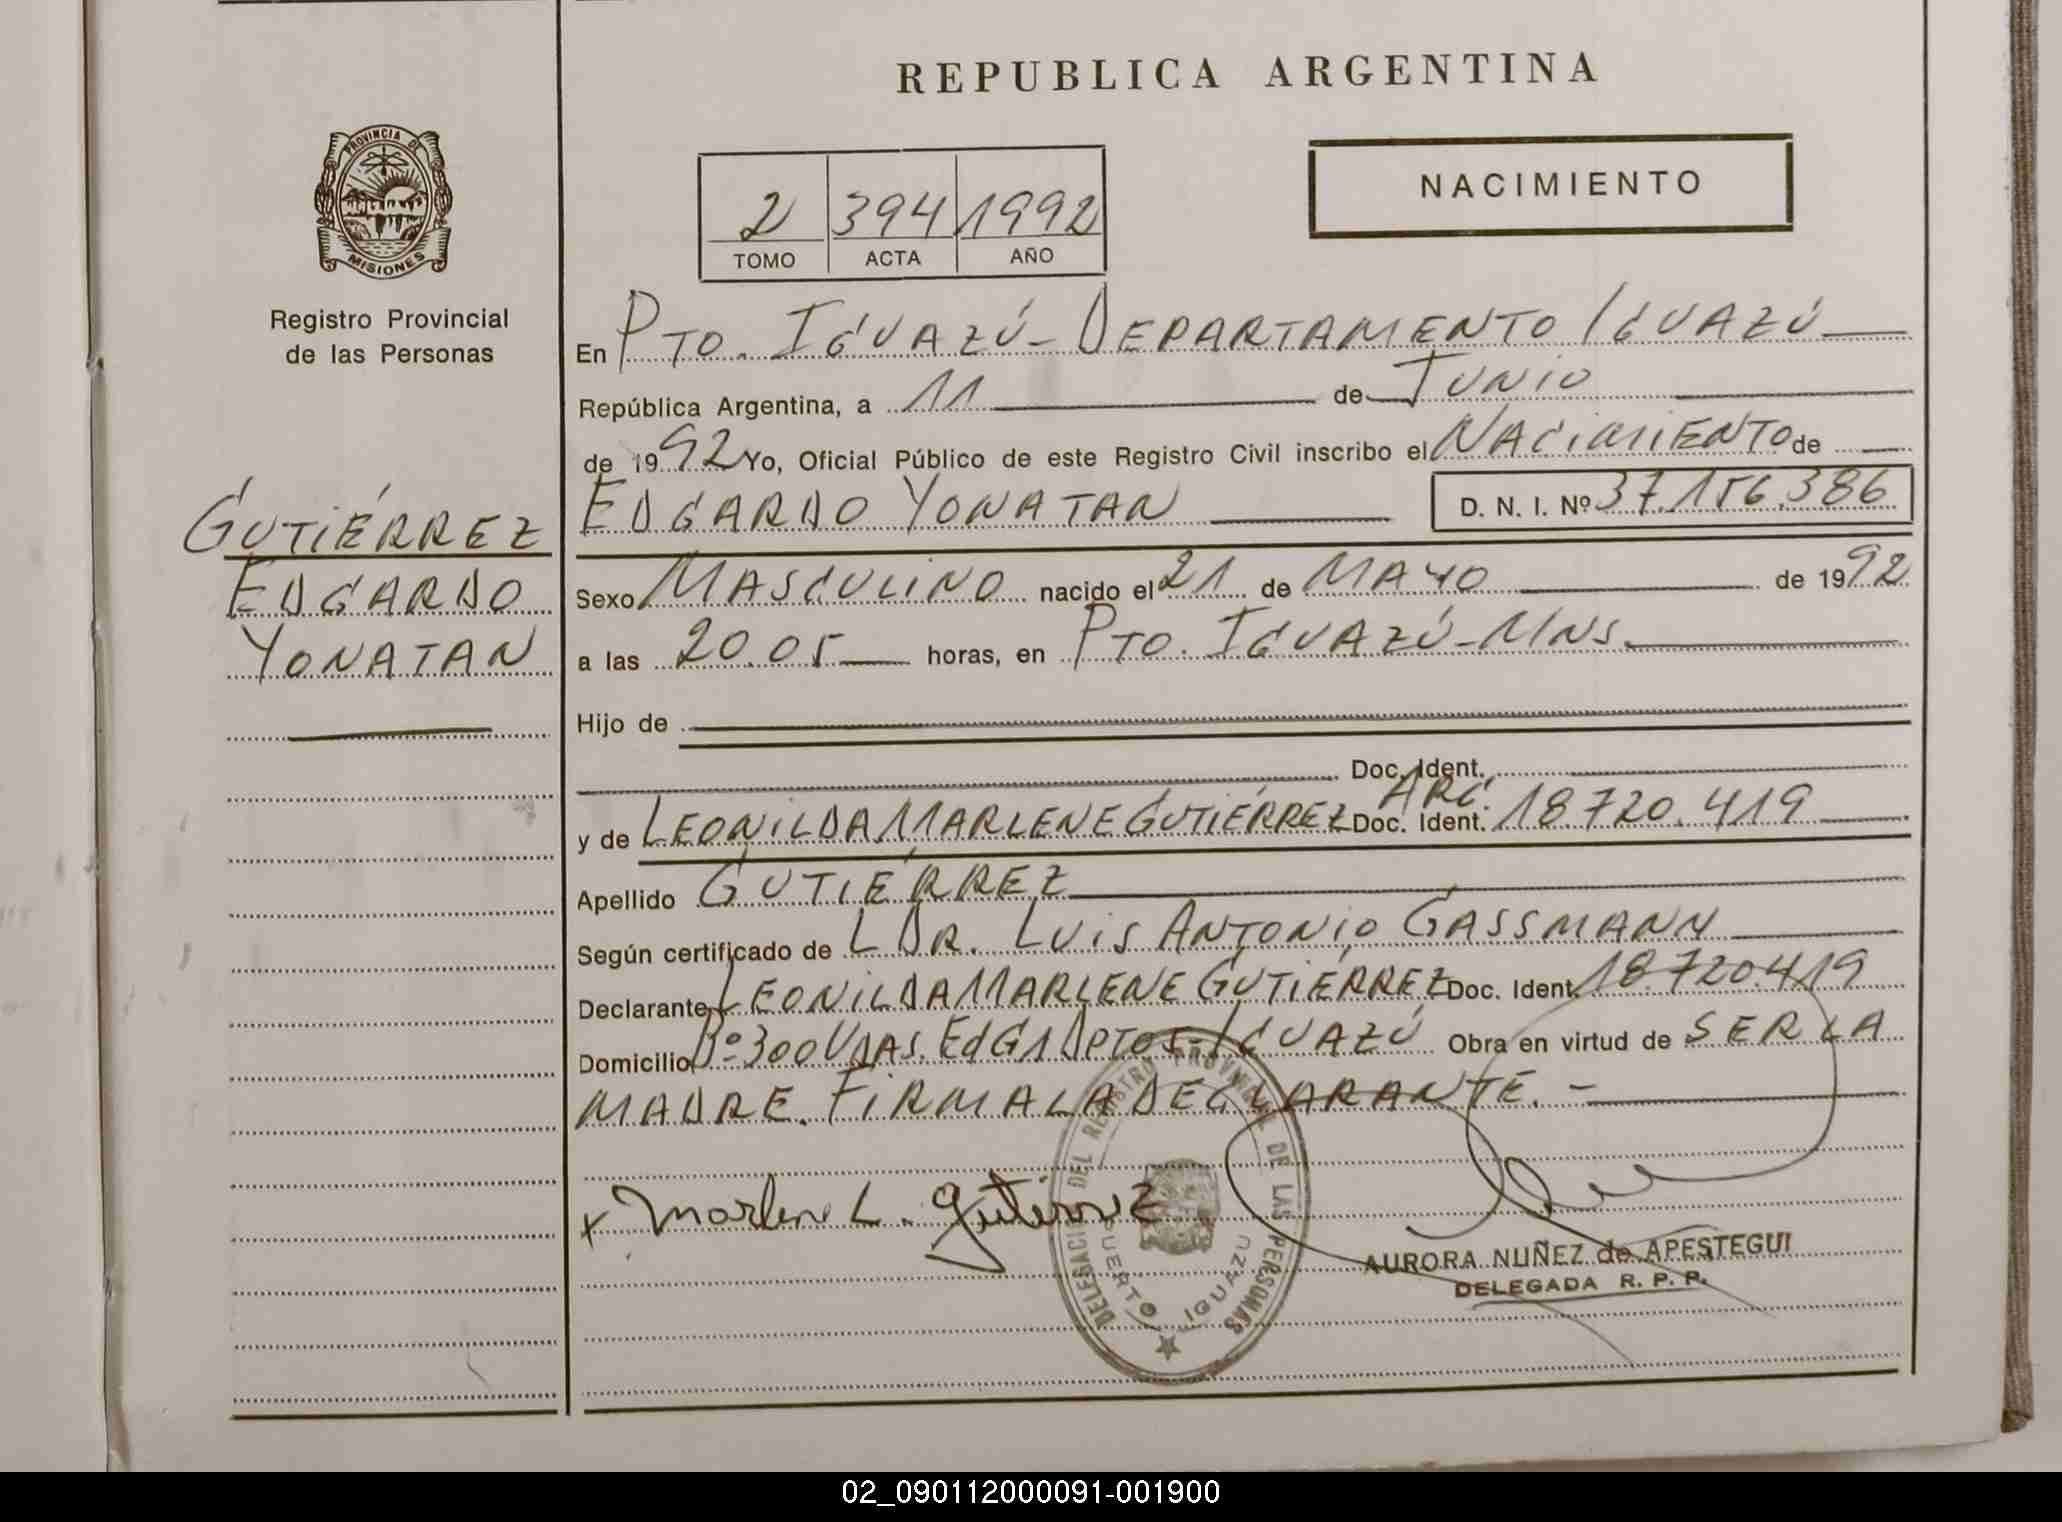 REPUBLICA ARGENTINA
PROVINCIA DE
MISIONES
Registro Provincial
de las Personas
NACIMIENTO
2 394 1992
TOMO ACTA AÑO
En PTO. IGUAZÚ - DEPARTAMENTO IGUAZÚ
República Argentina, a 11 de JUNIO
de 1992 Yo, Oficial Público de este Registro Civil inscribo el NACIMIENTO de
EDGARDO YONATAN D. N. I. Nº 37.156.386
GUTIÉRREZ
EDGARDO
YONATAN
Sexo MASCULINO nacido el 21 de MAYO de 1992
a las 20.05 horas, en PTO. IGUAZÚ - MNS.
Hijo de
Doc. Ident.
y de LEONILDA MARLENE GUTIÉRREZ Doc. Ident. ARG. 18.720.419
Apellido GUTIÉRREZ
Según certificado de L DR. LUIS ANTONIO GASSMANN
Declarante LEONILDA MARLENE GUTIÉRREZ Doc. Ident. 18.720.419
Domicilio Bº 300 VDAS. EDG1 DPTO 5 - IGUAZÚ Obra en virtud de SER LA
MADRE. FIRMA LA DECLARANTE. -
x Marlene L. Gutierrez
DELEGACION DEL REGISTRO PROVINCIAL DE LAS PERSONAS
PUERTO IGUAZU
AURORA NUÑEZ de APESTEGUI
DELEGADA R. P. P.
02_090112000091-001900